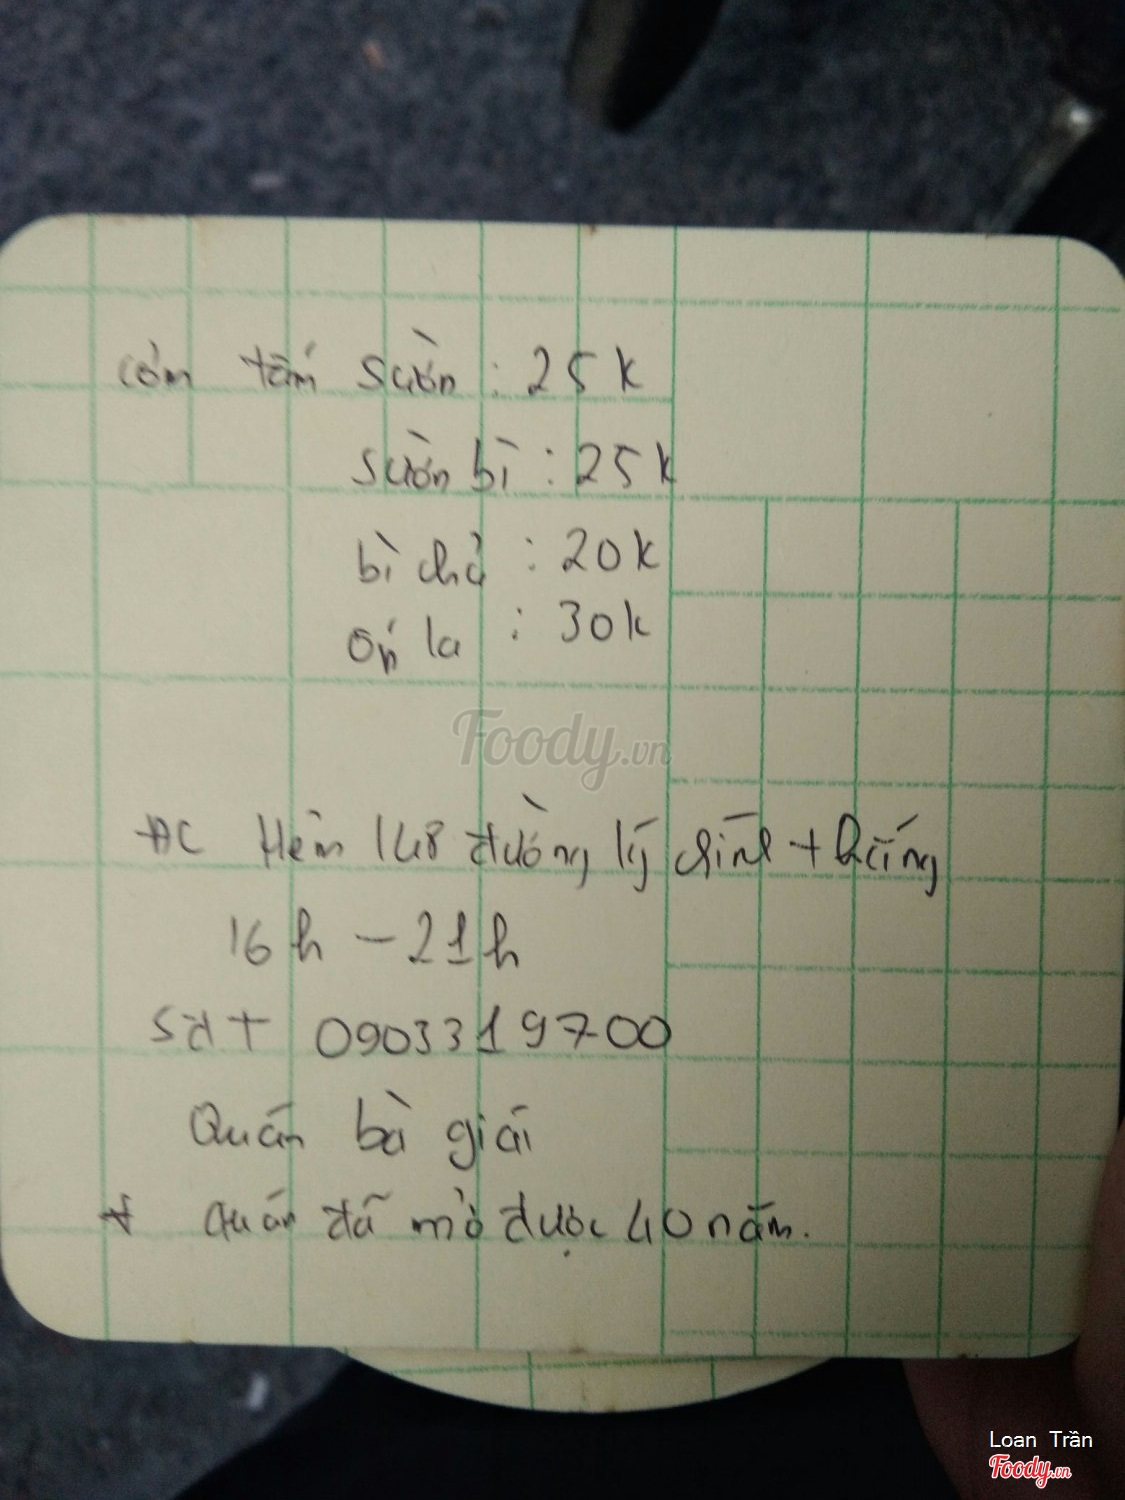 cơm tấm sườn : 25k
sườn bì : 25k
bì chả : 20k
ốp la : 30k
Foody.vn
ĐC Hẻm 148 đường lý chính thắng
16h - 21h
Sđt 0903319700
Quán bà giái
* quán đã mở được 40 năm.
Loan Trần
Foody.vn